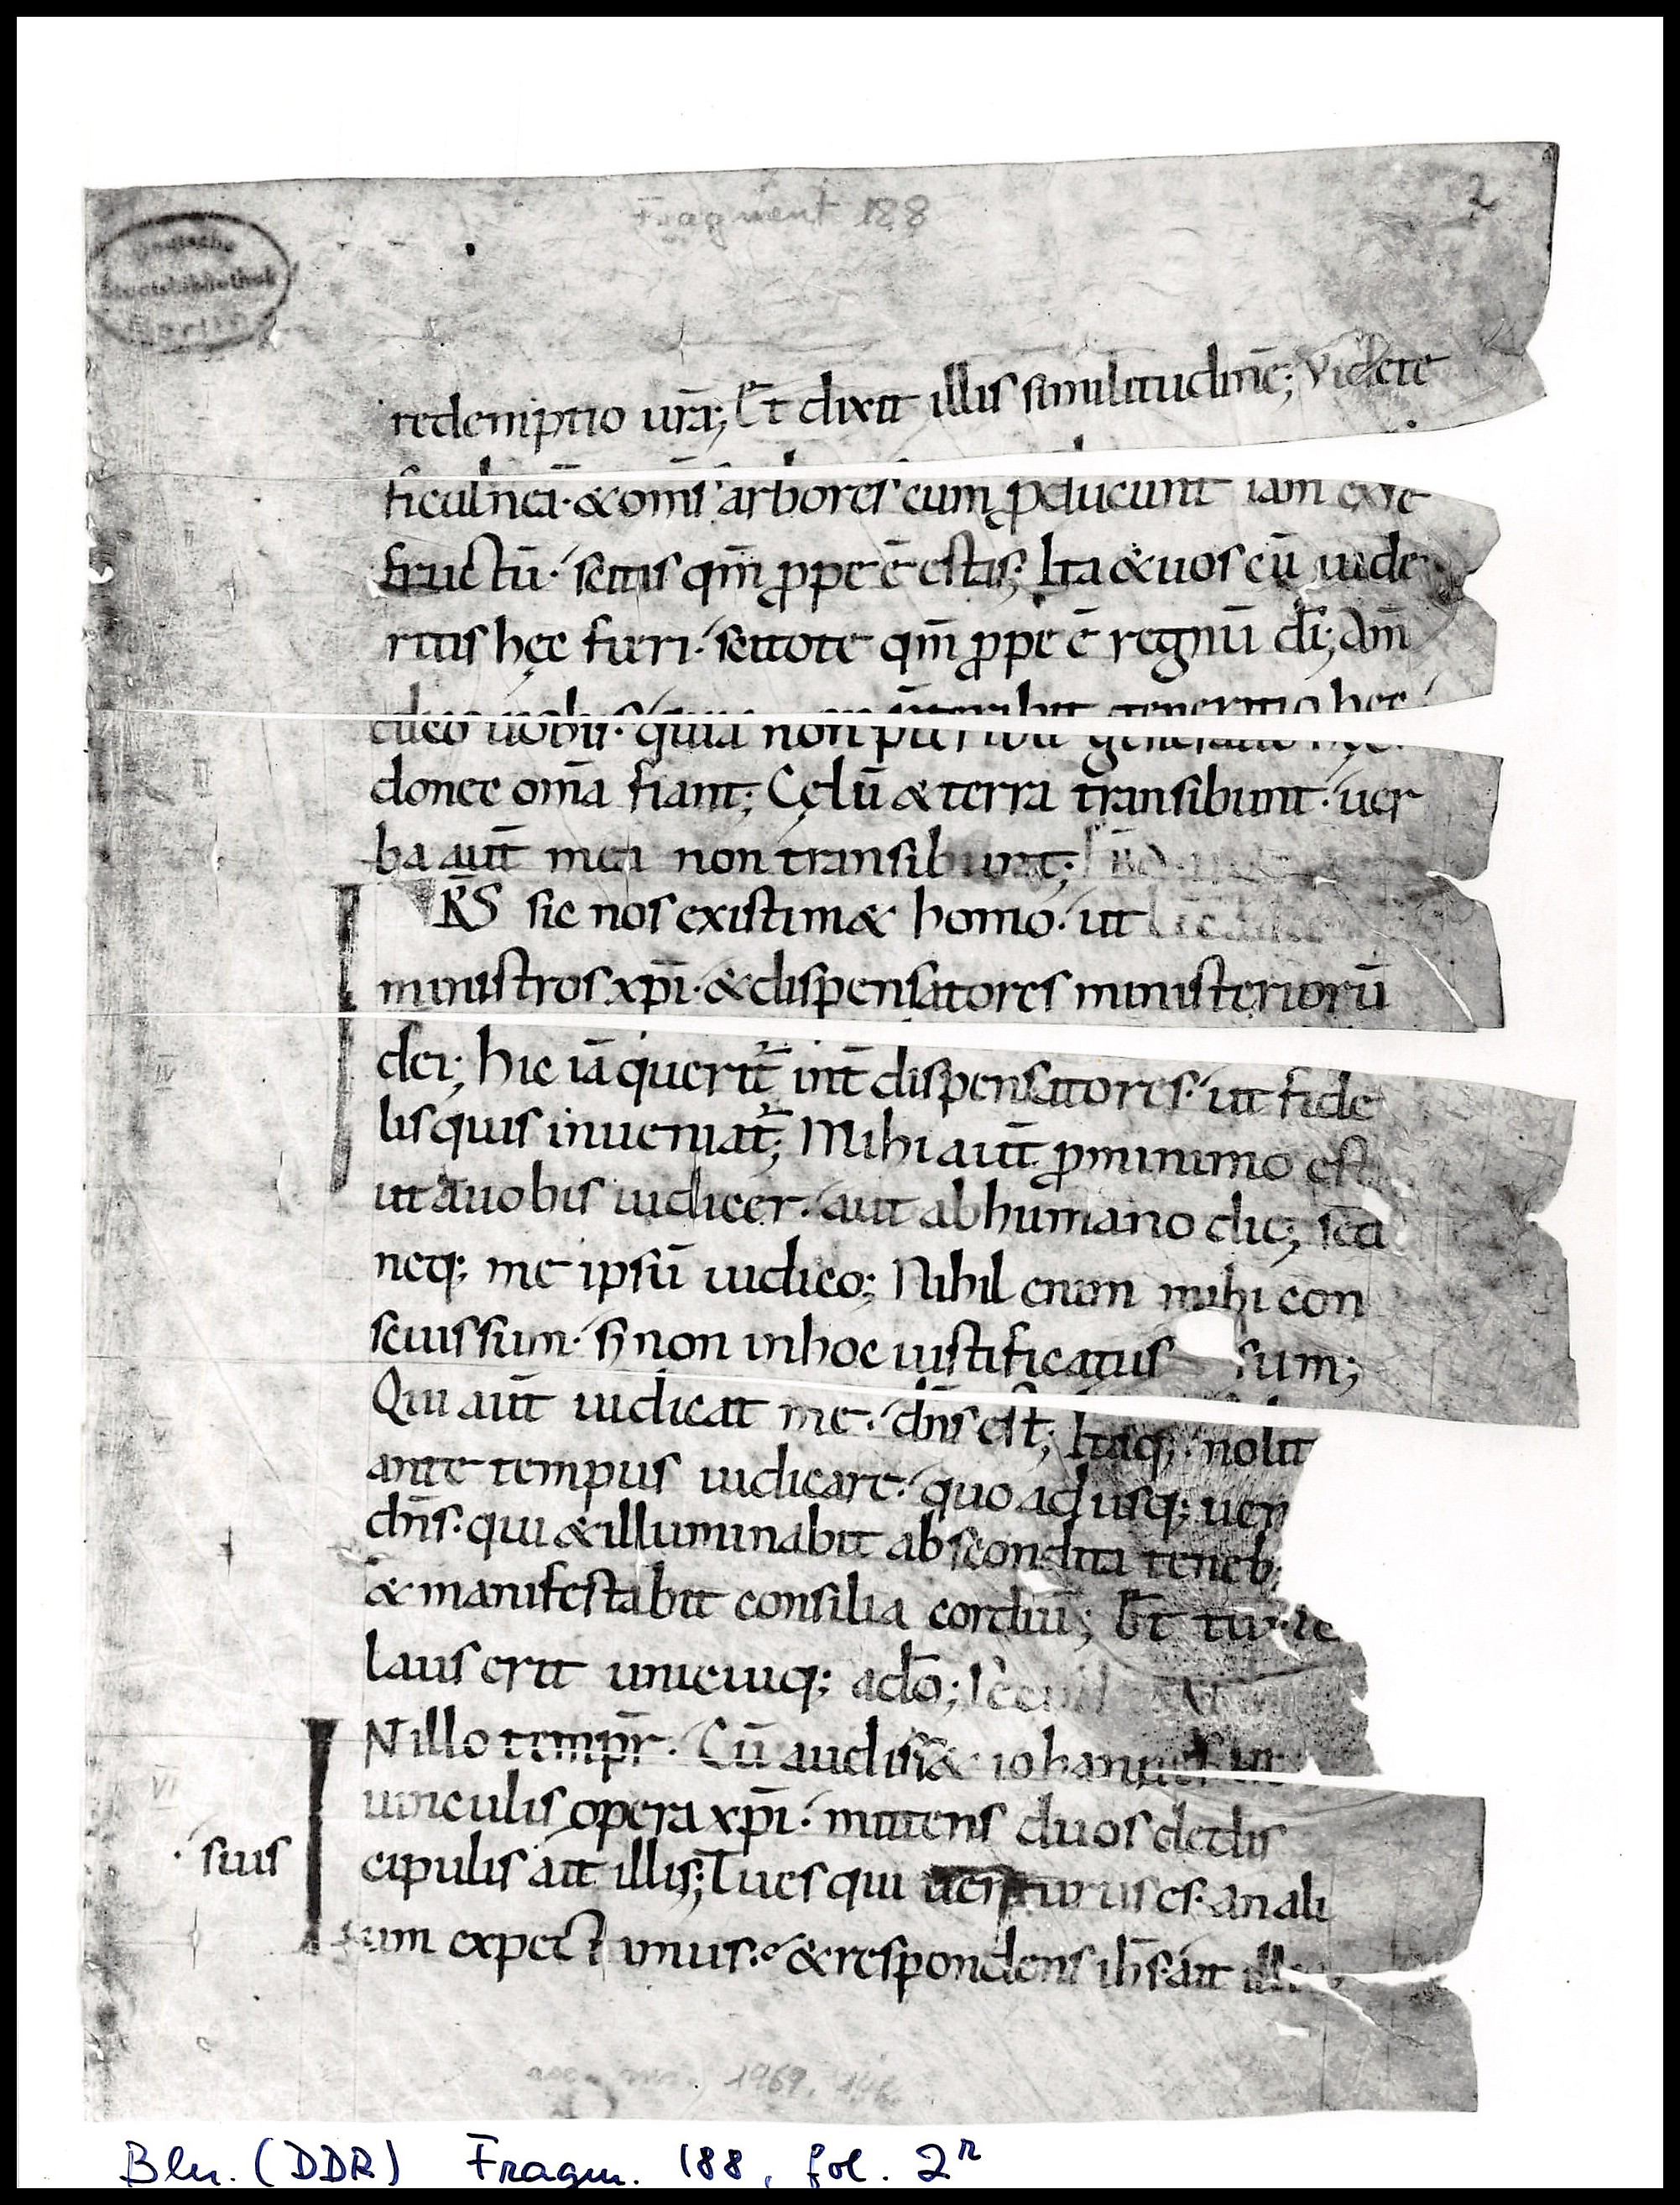 Fragment 188
2
redemptio ur̄a; Et dixit illis similitudinē; Videte
ficulnea· & om̄s arbores cum ꝓducunt iam ex se
fructū· scitis qm̄ ꝓpe ē estas; Ita & uos cū uide
ritis hęc fieri· scitote qm̄ ꝓpe ē regnū dī; Am̄
dico uobis· quia non p̄teribit generatio hęc·
donec om̄a fiant; Cęlū & terra transibunt· uer
ba aut̄ mea non transibunt;
FR̄S sic nos existim& homo· ut
ministros xp̄i· & dispensatores ministeriorū
dei; hic iā querit᷑ int̄ dispensatores· ut fide
lis quis inueniat᷑; Mihi aut̄ ꝓ minimo est
ut a uobis iudicer· aut ab humano die; sed
neq; me ipsū iudico; Nihil enim mihi con
scius sum· sꝫ non in hoc iustificatus sum;
Qui aut̄ iudicat me· dn̄s est; Itaq; nolit
ante tempus iudicare· quo adusq; uen
dn̄s· qui & illuminabit abscondita teneb
& manifestabit consilia cordiū; Et
laus erit unicuiq; a dō;
IN illo tempr̄· Cū audiss& iohannes in
uinculis opera xp̄i· mittens duos de dis
· suis
cipulis ait illis; Tu es qui uenturus es· an ali
um expectamus· & respondens ih̄s· ait
1969. 146
Bln. (DDR) Fragm. 188, fol. 2r